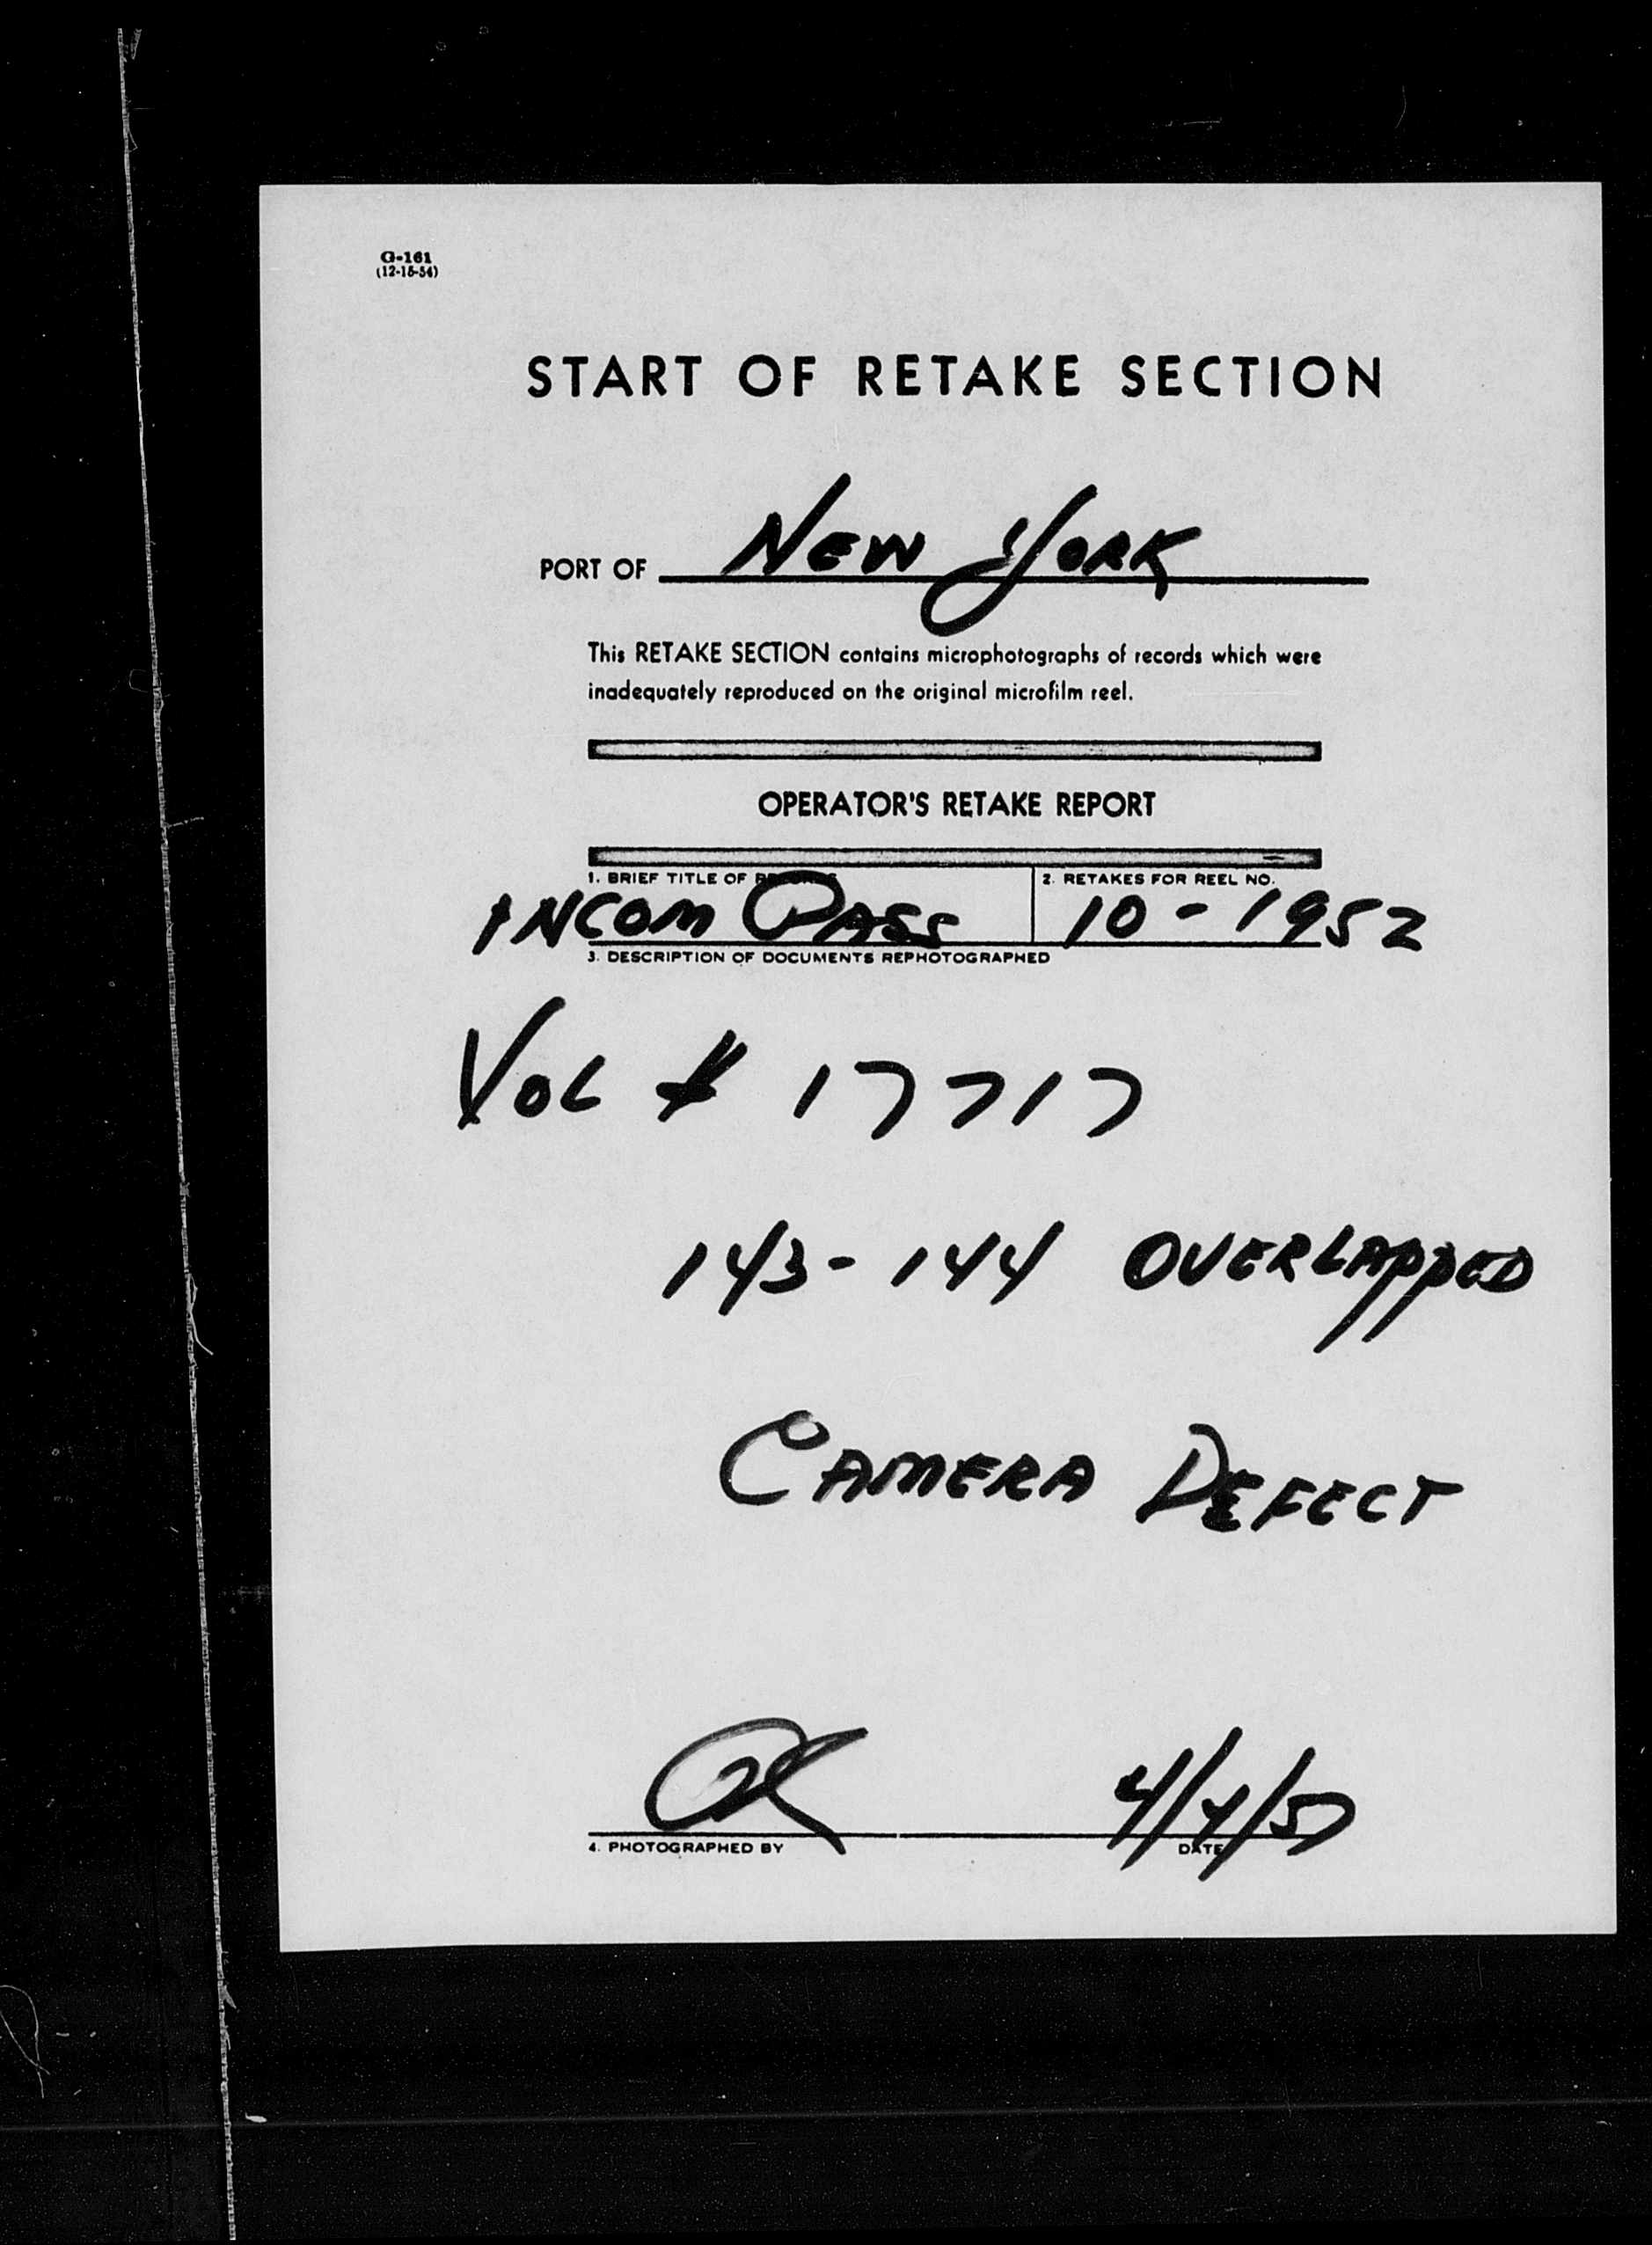 G-161
(12-15-54)
START OF RETAKE SECTION
PORT OF NEW YORK
This RETAKE SECTION contains microphotographs of records which were
inadequately reproduced on the original microfilm reel.
OPERATOR'S RETAKE REPORT
1. BRIEF TITLE OF 2. RETAKES FOR REEL NO.
INCOM PASS 10-1952
3. DESCRIPTION OF DOCUMENTS REPHOTOGRAPHED
VOL # 17717
143-144 OVERLAPPED
CAMERA DEFECT
4/4/57
4. PHOTOGRAPHED BY DATE